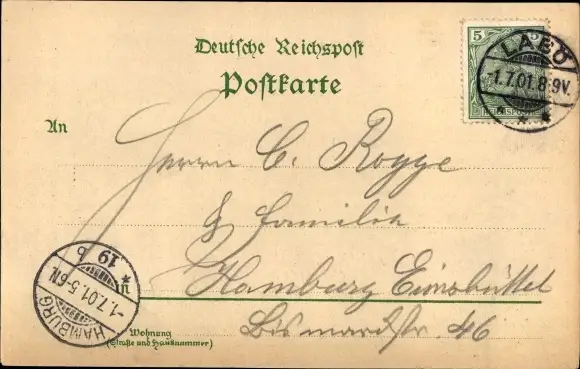 Deutsche Reichspost
Postkarte
5
LABÖ
-1.7.01.8-9V.
* *
An
Herrn C. Rogge
& Familie
in Hamburg Eimsbüttel
Bismarckstr. 46
Wohnung
(Straße und Hausnummer)
HAMBURG
-1.7.01.5-6N.
* 19 b